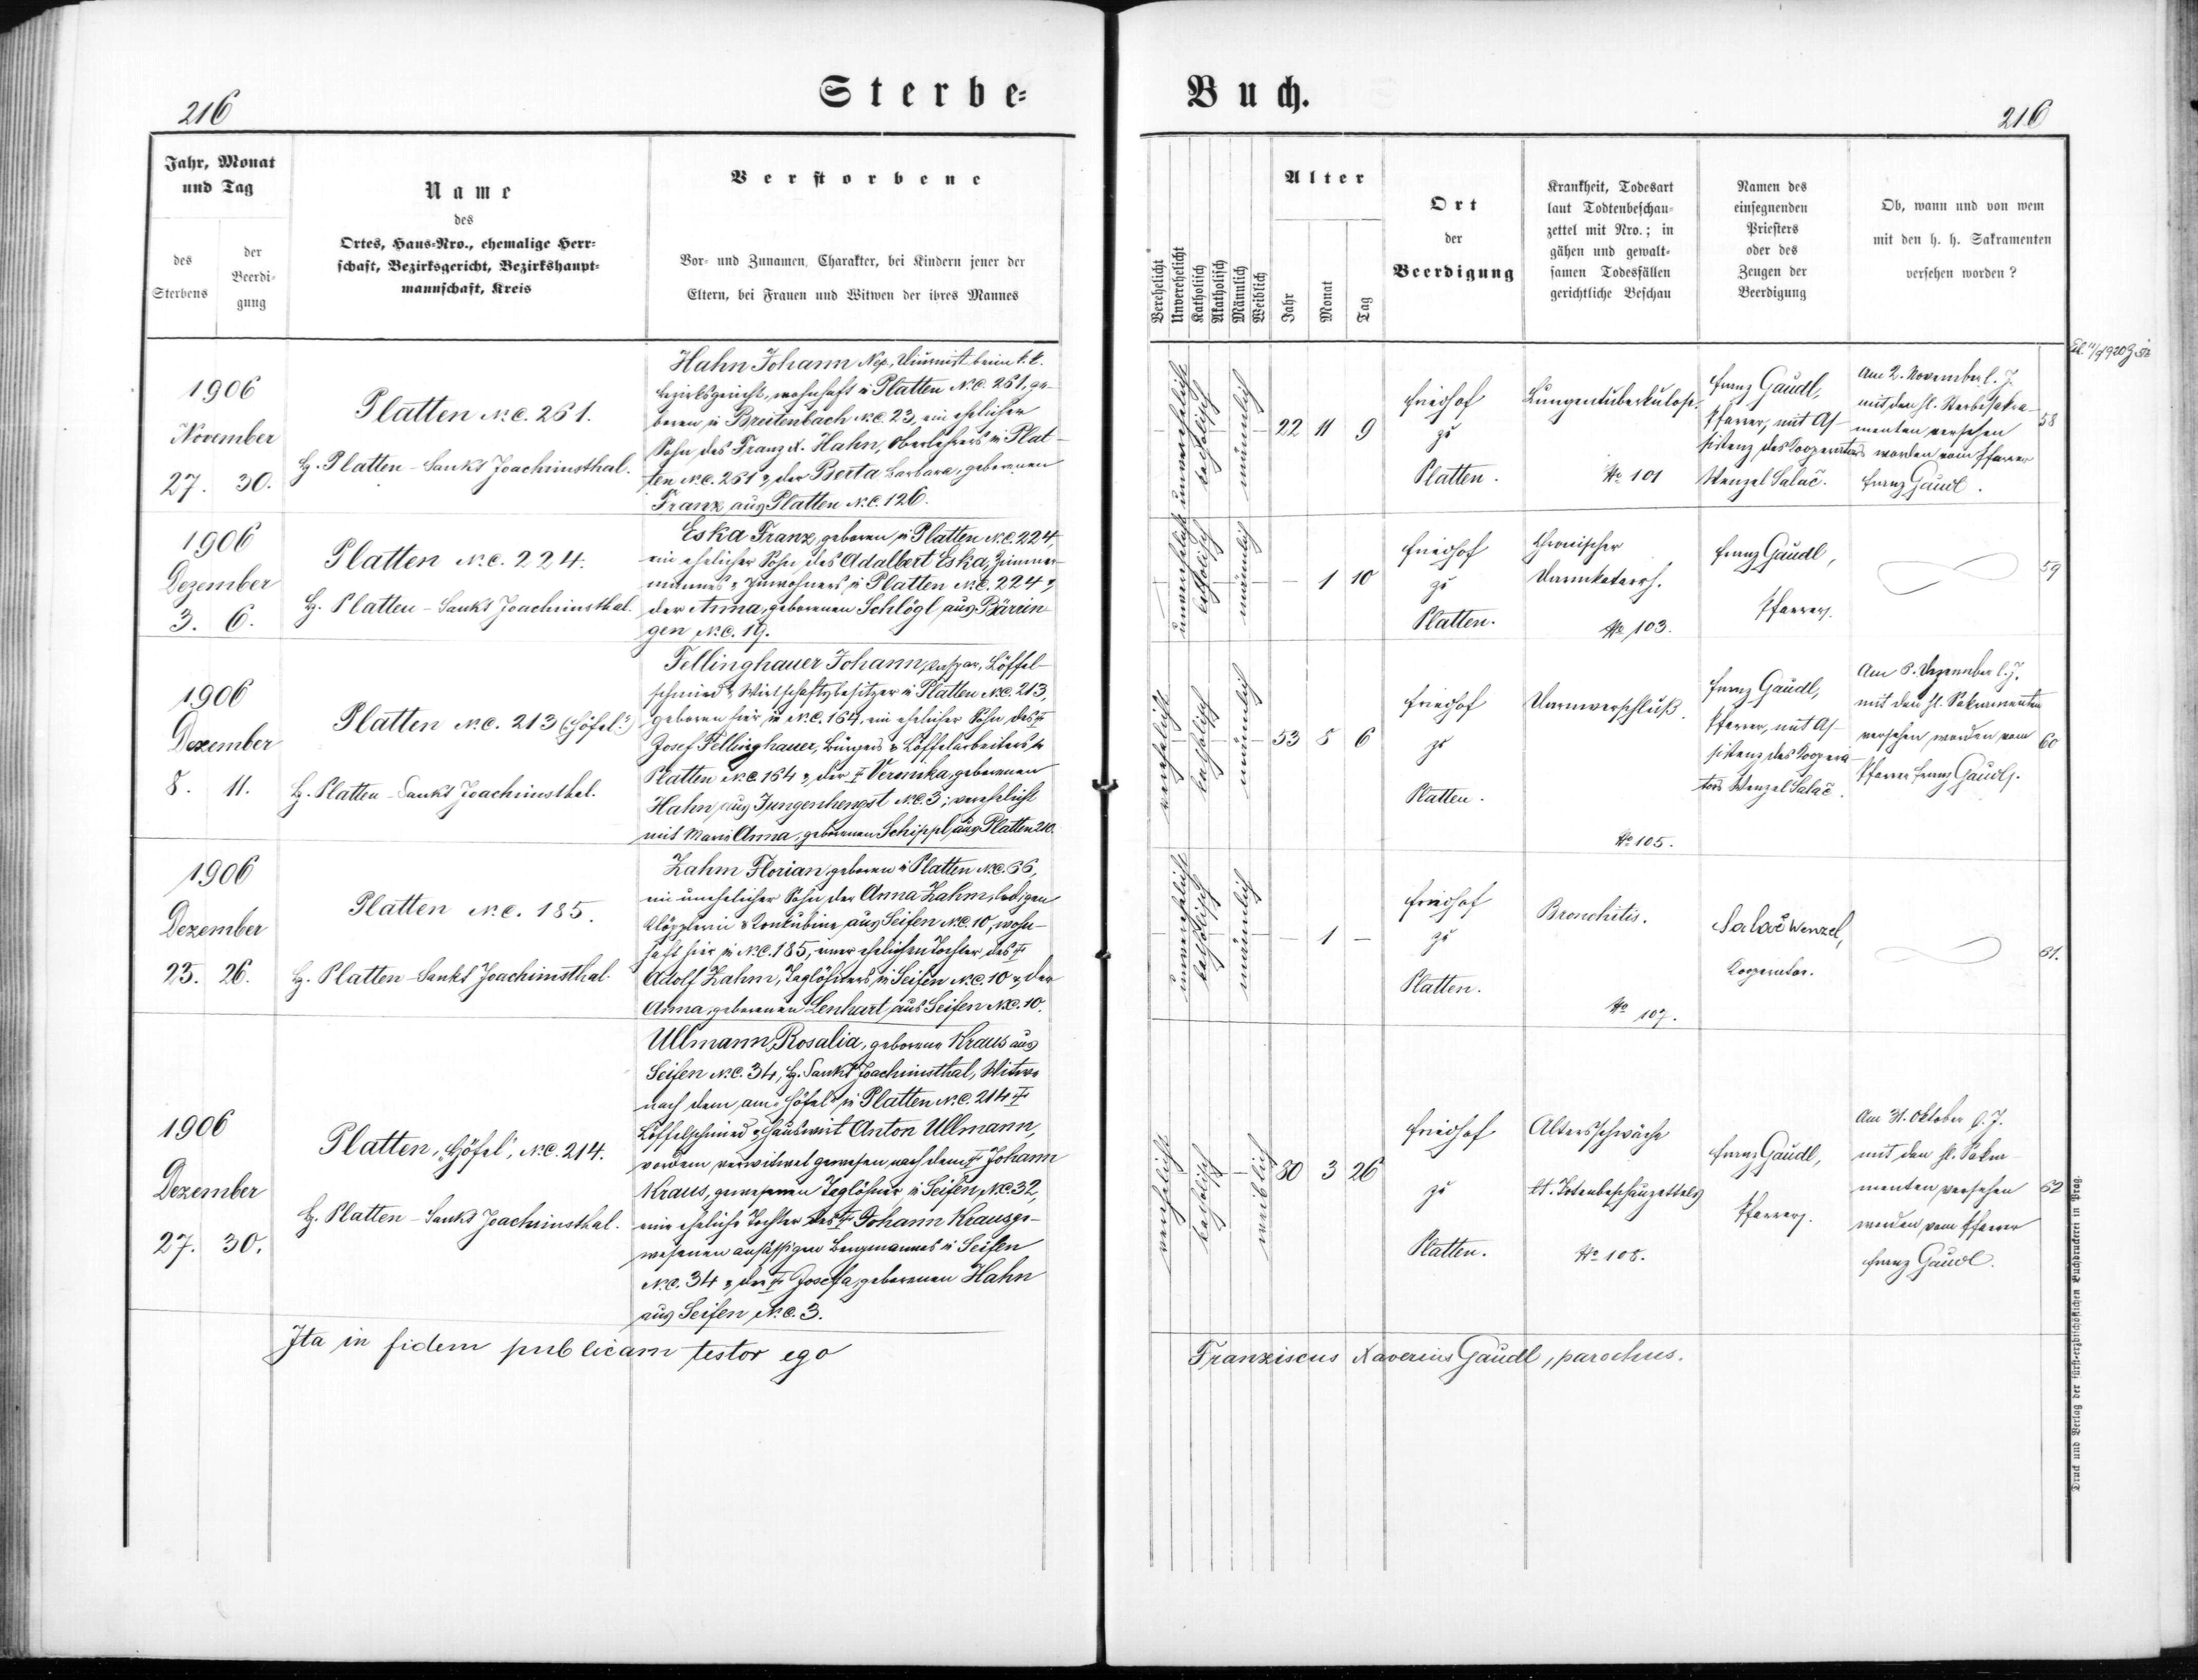 Sterbe=
Buch.
216
216
Jahr, Monat
und Tag
des
Sterbens
der
Beerdi-
gung
Name
des
Ortes, Haus=Nro., ehemalige Herr=
schaft, Bezirksgericht, Bezirkshaupt=
mannschaft, Kreis
Verstorbene
Vor= und Zunamen, Charakter, bei Kindern jener der
Eltern, bei Frauen und Witwen der ihres Mannes
Verehelicht
Unverehelicht
Katholisch
Akatholisch
Männlich
Weiblich
Alter
Jahr
Monat
Tag
Ort
der
Beerdigung
Krankheit, Todesart
laut Todtenbeschau=
zettel mit Nro.; in
gähen und gewalt=
samen Todesfällen
gerichtliche Beschau
Namen des
einsegnenden
Priesters
oder des
Zeugen der
Beerdigung
Ob, wann und von wem
mit den h. h. Sakramenten
versehen worden?
1906
November
27. 30.
Platten N.C. 261.
H. Platten - Sankt Joachimsthal.
Hahn Johann Nep., Diurnist beim k. k.
Bezirksgericht, wohnhaft in Platten N.C. 261, ge-
boren in Breitenbach N.C. 23, ein ehelicher
Sohn des Franz X. Hahn, Oberlehrers in Plat-
ten N.C. 261 & der Berta Barbara, geborenen
Franz aus Platten N.C. 126.
unverehelicht
katholisch
männlich
22 11 9
Friedhof
zu
Platten.
Lungentuberkulose.
No 101
Franz Gaudl,
Pfarrer, mit As-
sistenz des Kooperators
Wenzel Salač.
Am 2. November l. J.
mit den hl. Sterbesakra-
menten versehen
worden vom Pfarrer
Franz Gaudl.
58
1906
Dezember
3. 6.
Platten N.C. 224.
H. Platten - Sankt Joachimsthal.
Eska Franz, geboren in Platten N.C. 224,
ein ehelicher Sohn des Adalbert Eska, Zimmer-
mannes & Inwohners in Platten N.C. 224 &
der Anna, geborenen Schlögl aus Bärrin-
gen N.C. 19.
unverehelicht
katholisch
männlich
- 1 10
Friedhof
zu
Platten.
Chronischer
Darmkatarrh.
No 103.
Franz Gaudl,
Pfarrer.
59
1906
Dezember
8. 11.
Platten N.C. 213 (Höfel.)
H. Platten - Sankt Joachimsthal.
Fellinghauer Johann Kaspar, Löffel-
schmied & Wirtschaftsbesitzer in Platten N.C. 213,
geboren hier in N.C. 164, ein ehelicher Sohn des †
Josef Fellinghauer, Bürgers & Löffelarbeiters in
Platten N.C. 164 & der † Veronika, geborenen
Hahn aus Jungenhengst N.C. 3; verehelicht
mit Maria Anna, geborenen Schippl aus Platten 210.
verehelicht
katholisch
männlich
53 8 6
Friedhof
zu
Platten.
Darmverschluß.
No 105.
Franz Gaudl,
Pfarrer, mit As-
sistenz des Koopera-
tors Wenzel Salač.
Am 8. Dezember l. J.
mit den hl. Sakramenten
versehen worden vom
Pfarrer Franz Gaudl.
60
1906
Dezember
23. 26.
Platten N.C. 185.
H. Platten - Sankt Joachimsthal.
Zahm Florian, geboren in Platten N.C. 66,
ein unehelicher Sohn der Anna Zahm, ledigen
Klöpplerin & Konkubine aus Seifen N.C. 10, wohn-
haft hier in N.C. 185, einer ehelichen Tochter des †
Adolf Zahm, Taglöhners in Seifen N.C. 10 & der
Anna, geborenen Lenhart aus Seifen N.C. 10.
unverehelicht
katholisch
männlich
- 1 -
Friedhof
zu
Platten.
Bronchitis.
No 107.
Salač Wenzel,
Kooperator.
61.
1906
Dezember
27. 30.
Platten, "Höfel", N.C. 214.
H. Platten - Sankt Joachimsthal.
Ullmann Rosalia, geborene Kraus aus
Seifen N.C. 34, H. Sankt Joachimsthal, Witwe
nach dem am "Höfel" in Platten N.C. 214 †
Löffelschmied & Hauswirt Anton Ullmann,
vordem verwitwet gewesen nach dem † Johann
Kraus, gewesenen Taglöhner in Seifen N.C. 32,
eine eheliche Tochter des † Johann Kraus, ge-
wesenen ansässigen Bergmannes in Seifen
N.C. 34 & der † Josefa, geborenen Hahn
aus Seifen N.C. 3.
verehelicht
katholisch
weiblich
80 3 26
Friedhof
zu
Platten.
Altersschwäche
lt. Totenbeschauzettels
No 108.
Franz Gaudl,
Pfarrer.
Am 31. Oktober l. J.
mit den hl. Sakra-
menten versehen
worden vom Pfarrer
Franz Gaudl.
62
Ita in fidem publicam testor ego
Franziscus Xaverius Gaudl, parochus.
Druck und Verlag der fürst=erzbischöflichen Buchdruckerei in Prag.